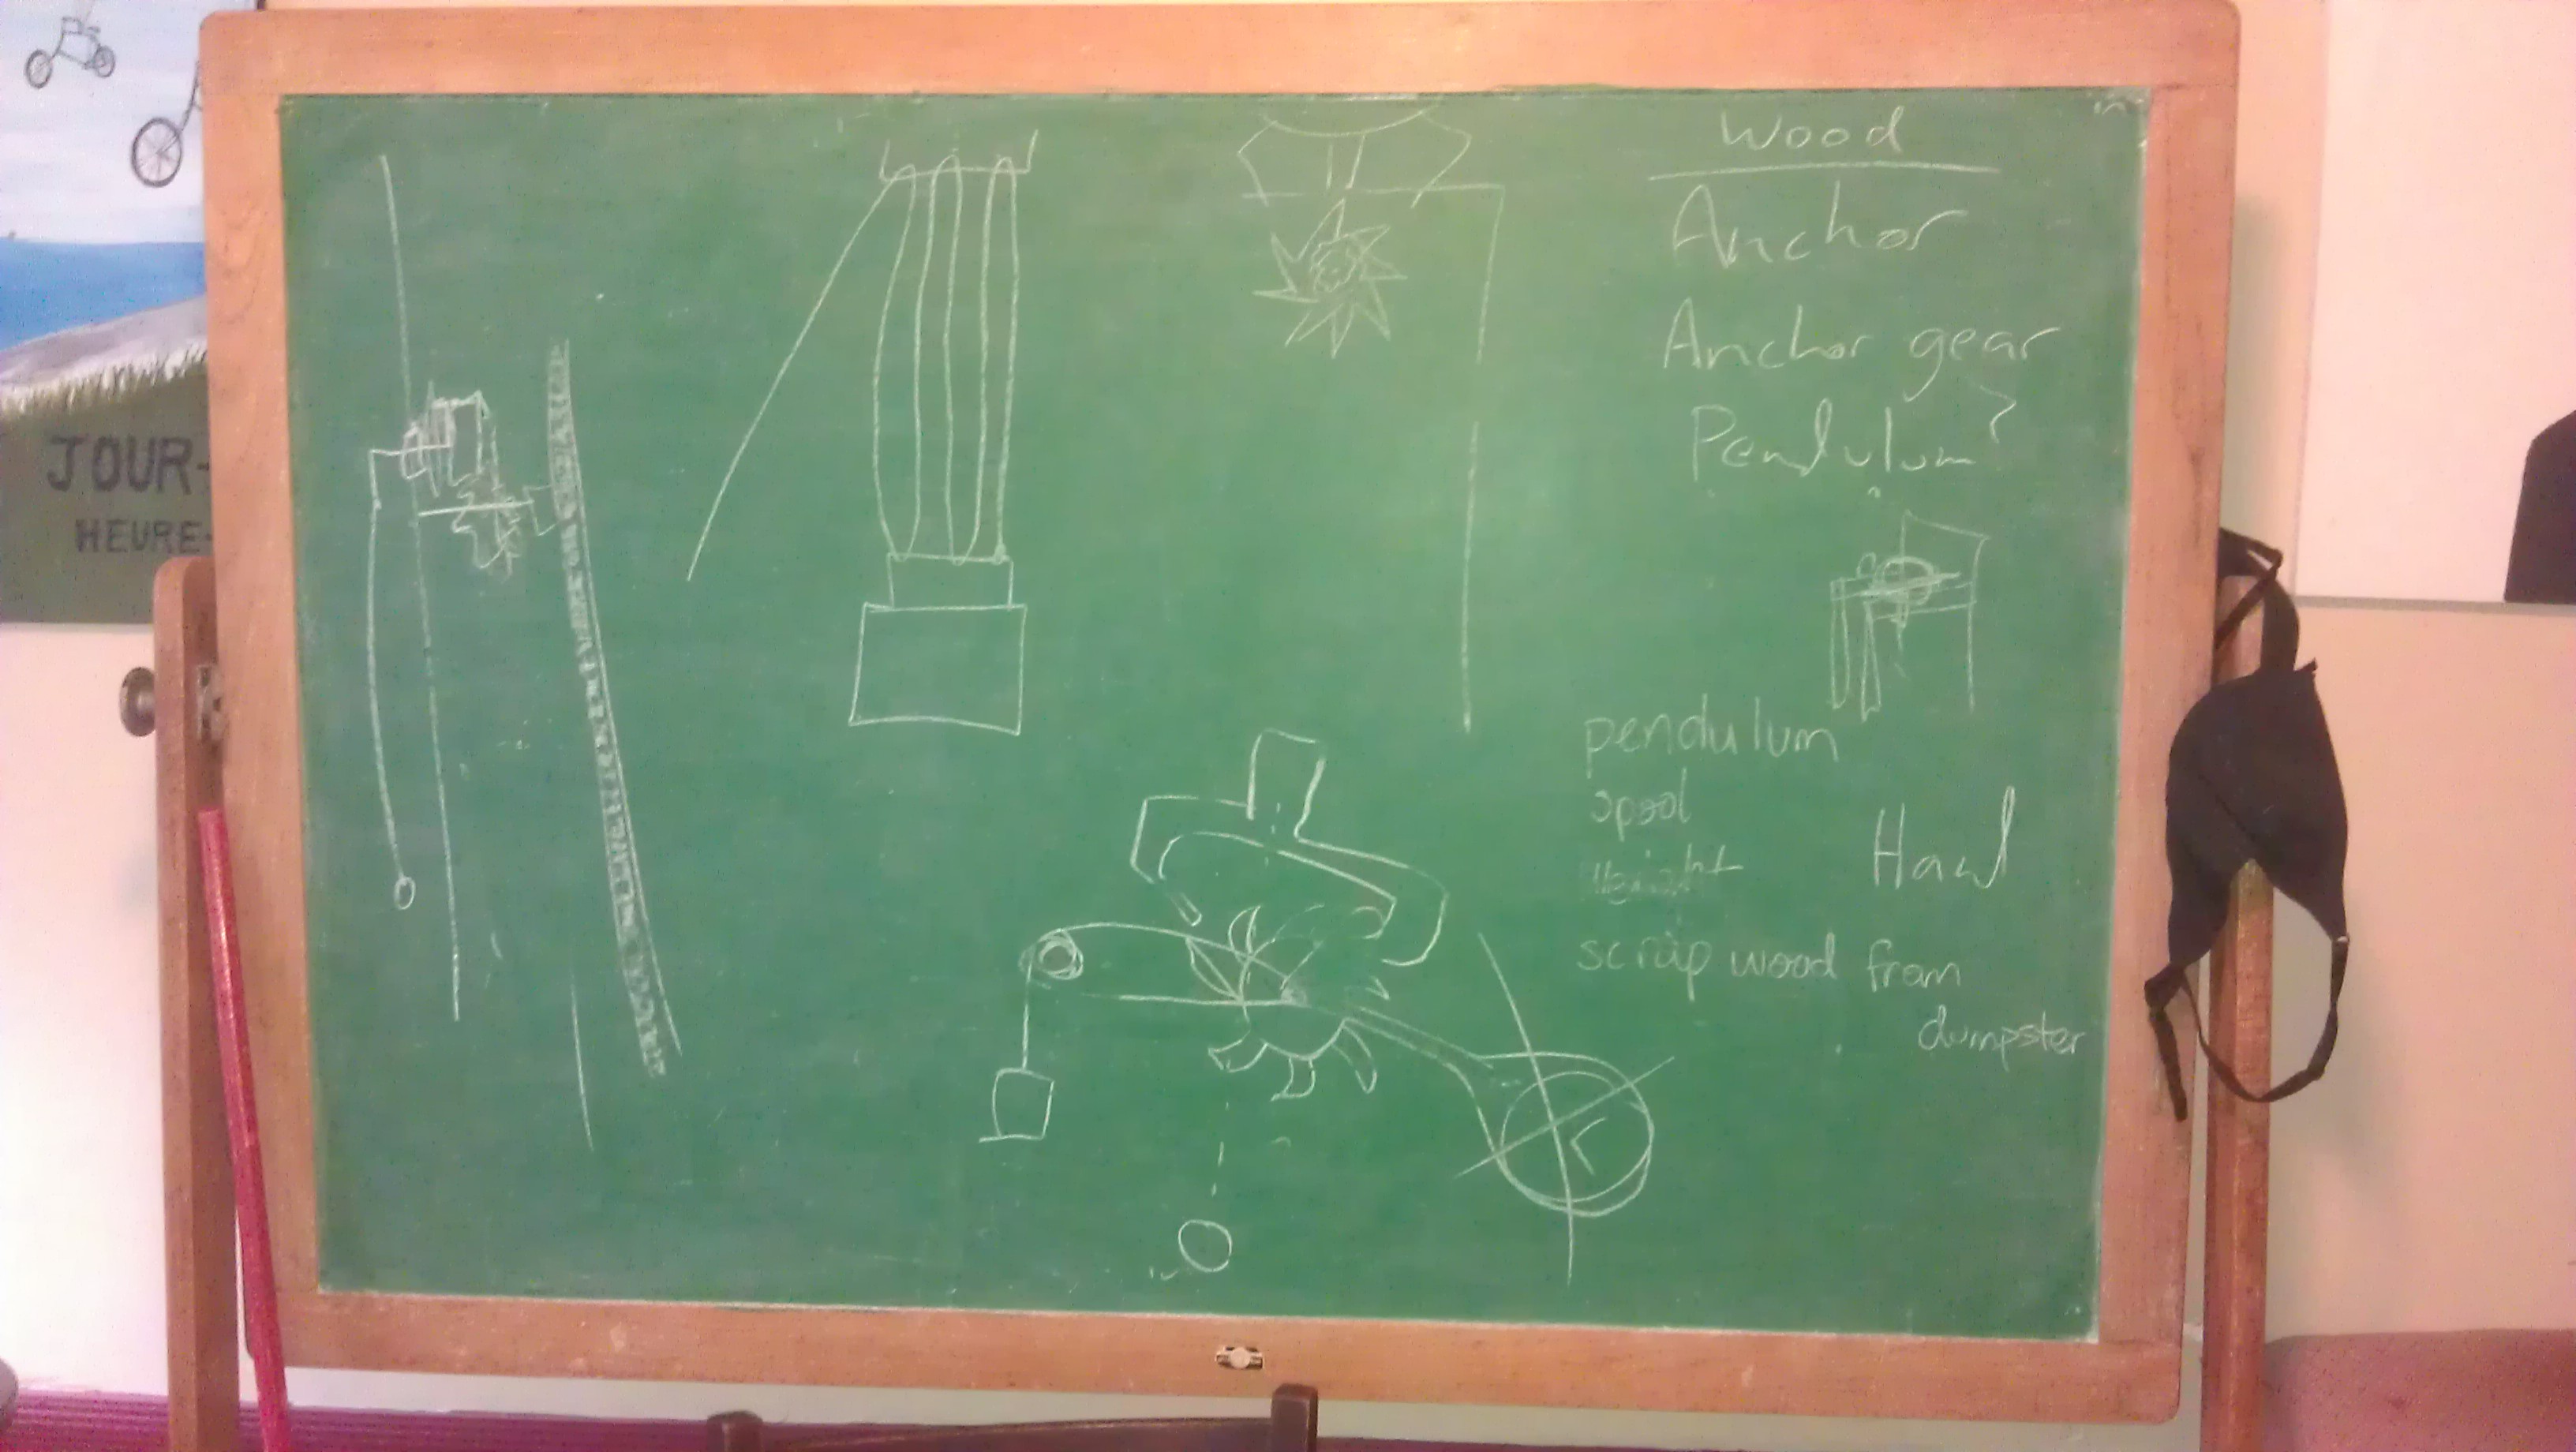 JOUR-
HEURE-
Wood
Anchor
Anchor gear
Pendulum?
pendulum
spool
Weight
scrap wood from
dumpster